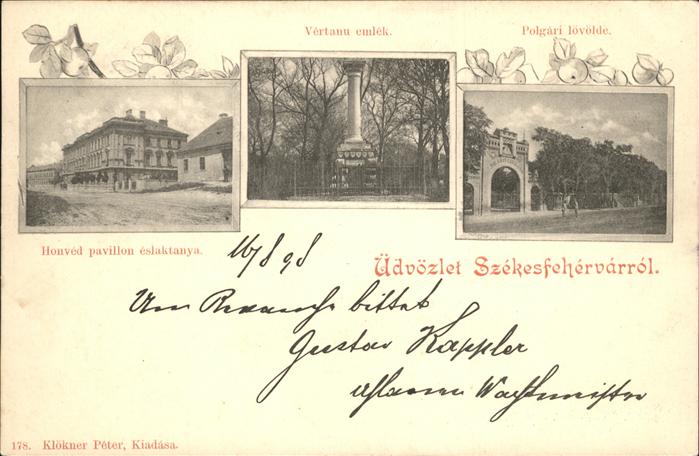 Vértanu emlék.
Polgári lövölde.
Honvéd pavillon éslaktanya.
16/8 98
Üdvözlet Székesfehérvárról.
Um Revanche bittet
Gustav Kappler
Wachtmeister
178. Klökner Péter, Kiadása.